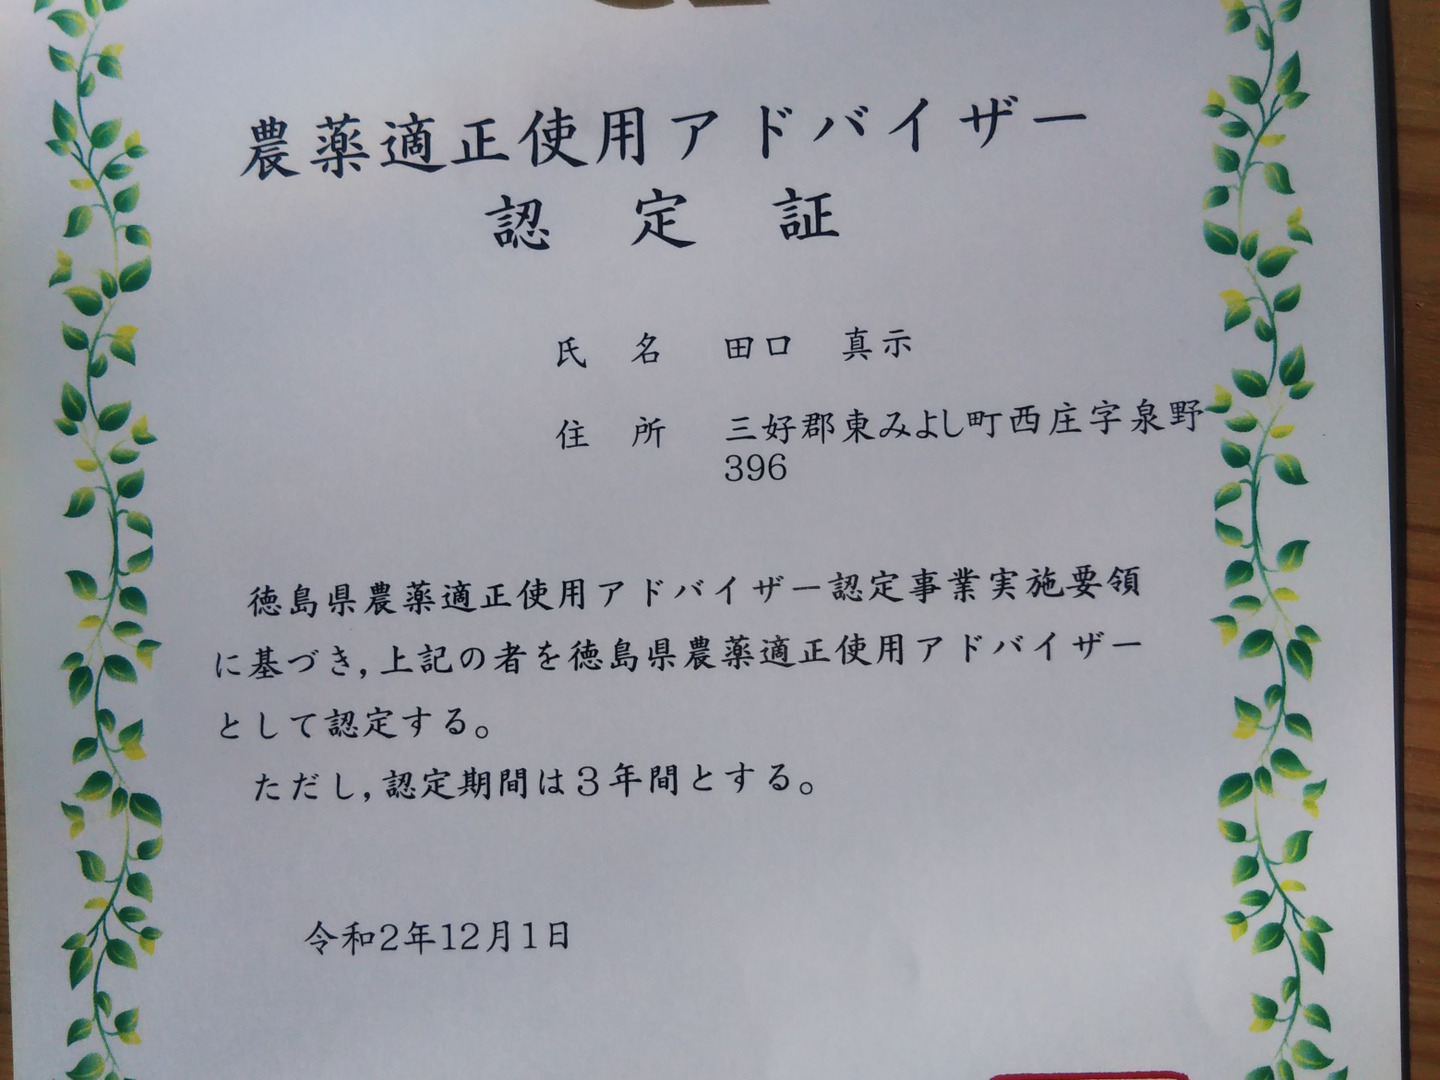 農薬適正使用アドバイザー
認定証
氏名 田口 真示
住所 三好郡東みよし町西庄字泉野
396
徳島県農薬適正使用アドバイザー認定事業実施要領
に基づき,上記の者を徳島県農薬適正使用アドバイザー
として認定する。
ただし,認定期間は3年間とする。
令和2年12月1日